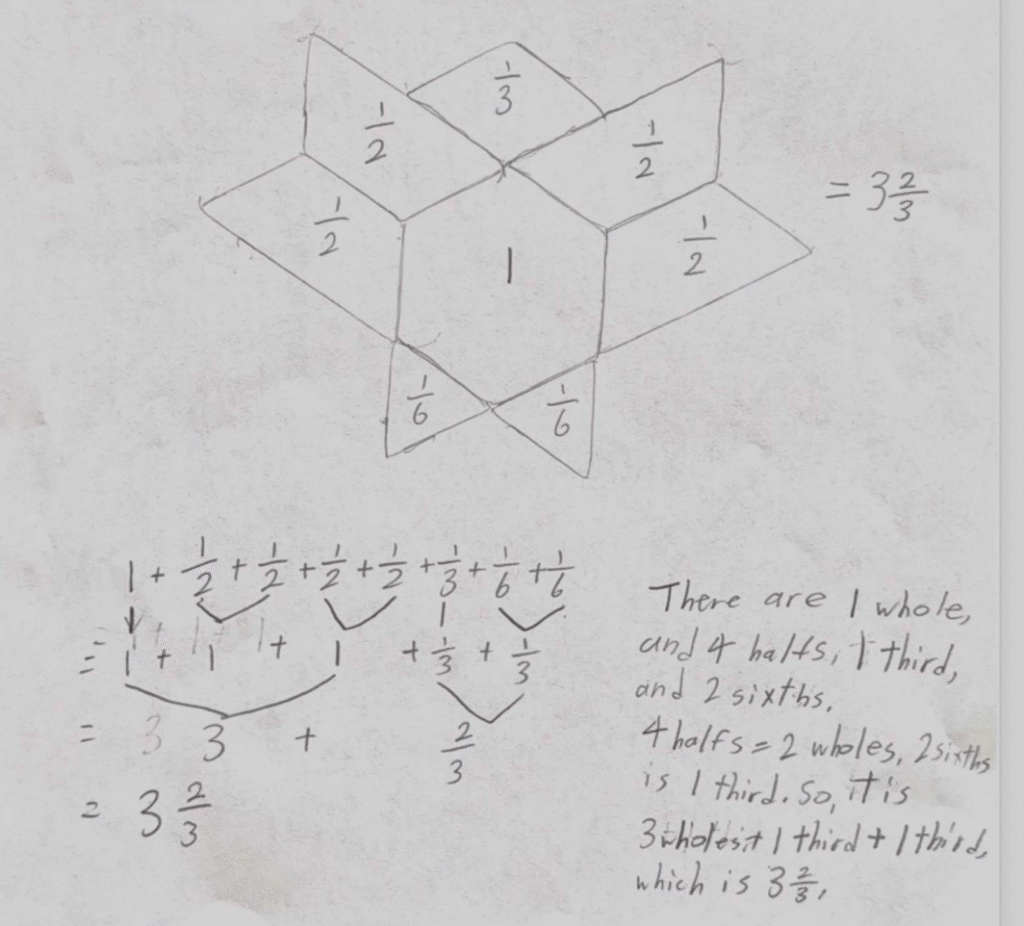 1/3
1/2
1/2
= 3 2/3
1/2
1/2
1
1/6
1/6
1 + 1/2 + 1/2 + 1/2 + 1/2 + 1/3 + 1/6 + 1/6
= 1 + 1 + 1 + 1/3 + 1/3
= 3 + 2/3
= 3 2/3
There are 1 whole,
and 4 halfs, 1 third,
and 2 sixths.
4 halfs = 2 wholes, 2 sixths
is 1 third. So, it is
3 wholes + 1 third + 1 third,
which is 3 2/3.